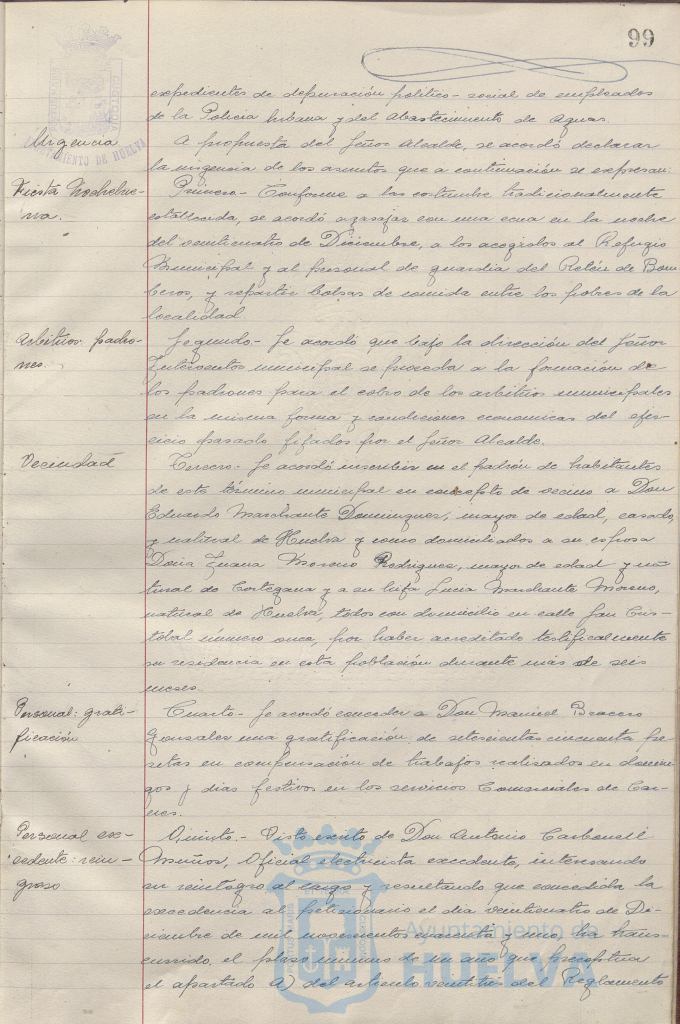 99
expedientes de depuración politico-social de empleados
de la Policia Urbana y del Abastecimiento de Aguas.
Urgencia
A propuesta del Señor Alcalde, se acordó declarar
la urgencia de los asuntos que a continuación se expresan:
Fiesta Nochebue-
na.
Primero- Conforme a las costumbre tradicionalmente
establecida, se acordó agasajar con una cena en la noche
del veinticuatro de Diciembre, a los acogidos al Refugio
Municipal y al personal de guardia del Retén de Bom
beros, y repartir bolsas de comida entre los pobres de la
localidad.
Arbitrios: padro-
nes.
Segundo- Se acordó que bajo la dirección del Señor
Interventor municipal se proceda a la formación de
los padrones para el cobro de los arbitrios municipales
en la misma forma y condiciones economicas del ejer-
cicio pasado fijados por el Señor Alcalde.
Vecindad
Tercero- Se acordó inscribir en el padrón de habitantes
de este término municipal en concepto de vecino a Don
Eduardo Marchante Dominguez, mayor de edad, casado,
y natural de Huelva y como domiciliados a su esposa
Doña Juana Moreno Rodriguez, mayor de edad y na
tural de Cortegana y a su hija Lucia Marchante Moreno,
natural de Huelva, todos con domicilio en calle San Cris-
tobal número once, por haber acreditado testificalmente
su residencia en esta población durante más de seis
meses.
Personal: grati-
ficación
Cuarto- Se acordó conceder a Don Manuel Bracero
Gonzalez una gratificación de setecientas cincuenta pe-
setas en compensación de trabajos realizados en domin-
gos y dias festivos en los servicios Comerciales de Car-
nes.
Personal ex-
cedente: rein-
greso
Quinto.- Visto escrito de Don Antonio Carbonell
Muñoz, Oficial electricista excedente, interesando
su reintegro al cargo y resultando que concedida la
excedencia al peticionario el dia veinticuatro de Di-
ciembre de mil novecientos cuarenta y uno, ha trans-
currido, el plazo minimo de un año que preceptua
el apartado A) del articulo veintitres del Reglamento
Ayuntamiento de
HUELVA